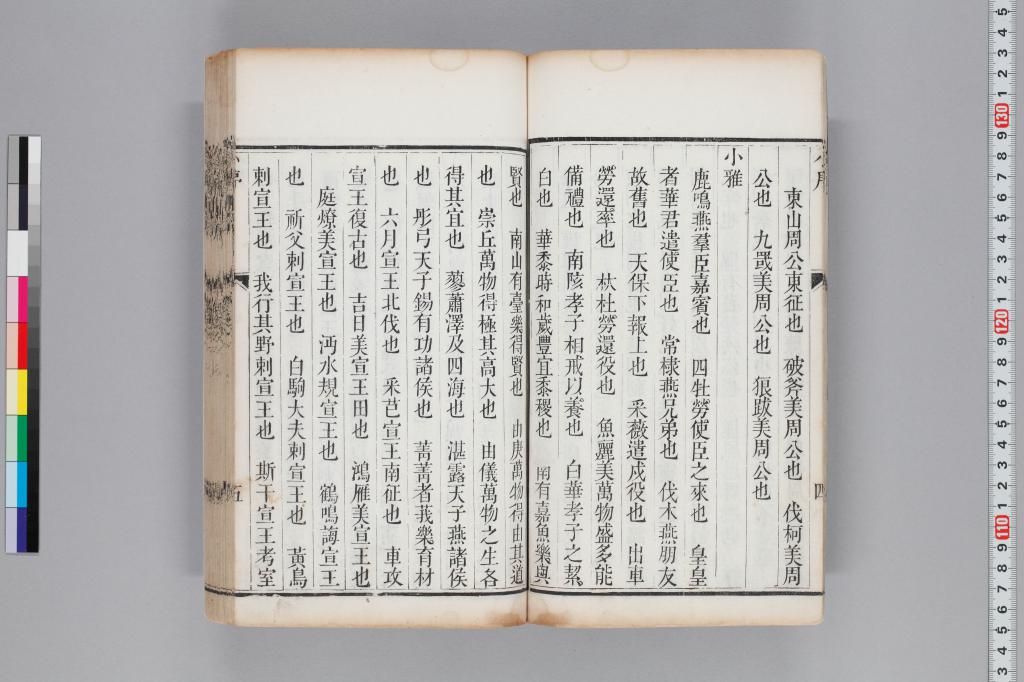 東山周公東征也　破斧美周公也　伐柯美周
公也　九罭美周公也　狼跋美周公也
小雅
鹿鳴燕羣臣嘉賓也　四牡勞使臣之來也　皇皇
者華君遣使臣也　常棣燕兄弟也　伐木燕朋友
故舊也　天保下報上也　采薇遣戍役也　出車
勞還率也　杕杜勞還役也　魚麗美萬物盛多能
備禮也　南陔孝子相戒以養也　白華孝子之絜
白也　華黍時和歲豐宜黍稷也　南有嘉魚樂與
賢也　南山有臺樂得賢也　由庚萬物得由其道
也　崇丘萬物得極其高大也　由儀萬物之生各
得其宜也　蓼蕭澤及四海也　湛露天子燕諸侯
也　彤弓天子錫有功諸侯也　菁菁者莪樂育材
也　六月宣王北伐也　采芑宣王南征也　車攻
宣王復古也　吉日美宣王田也　鴻雁美宣王也
庭燎美宣王也　沔水規宣王也　鶴鳴誨宣王
也　祈父刺宣王也　白駒大夫刺宣王也　黃鳥
刺宣王也　我行其野刺宣王也　斯干宣王考室
四
五
130
120
110